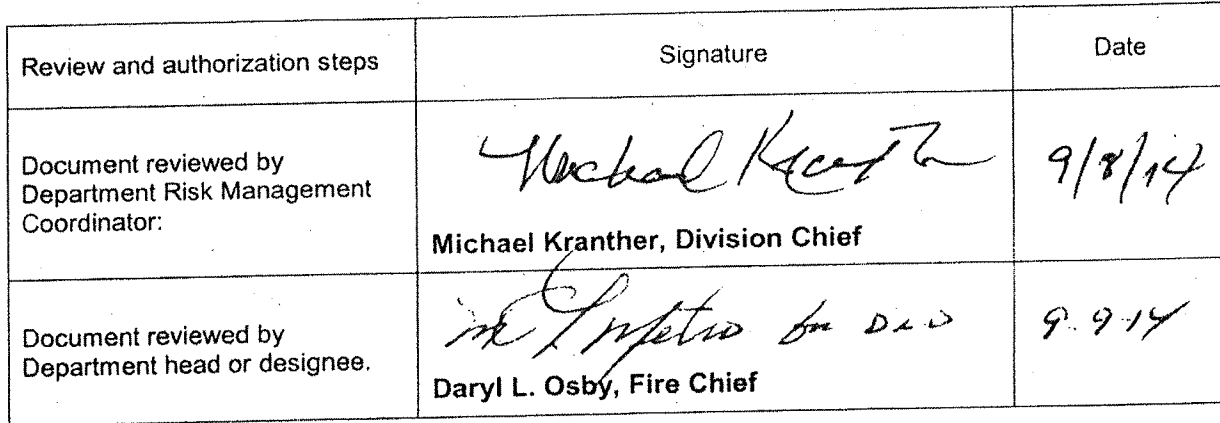 Review and authorization steps
Signature
Date
Document reviewed by
Department Risk Management
Coordinator:
Michael Kranther
Michael Kranther, Division Chief
9/8/14
Document reviewed by
Department head or designee.
for DLO
Daryl L. Osby, Fire Chief
9.9.14